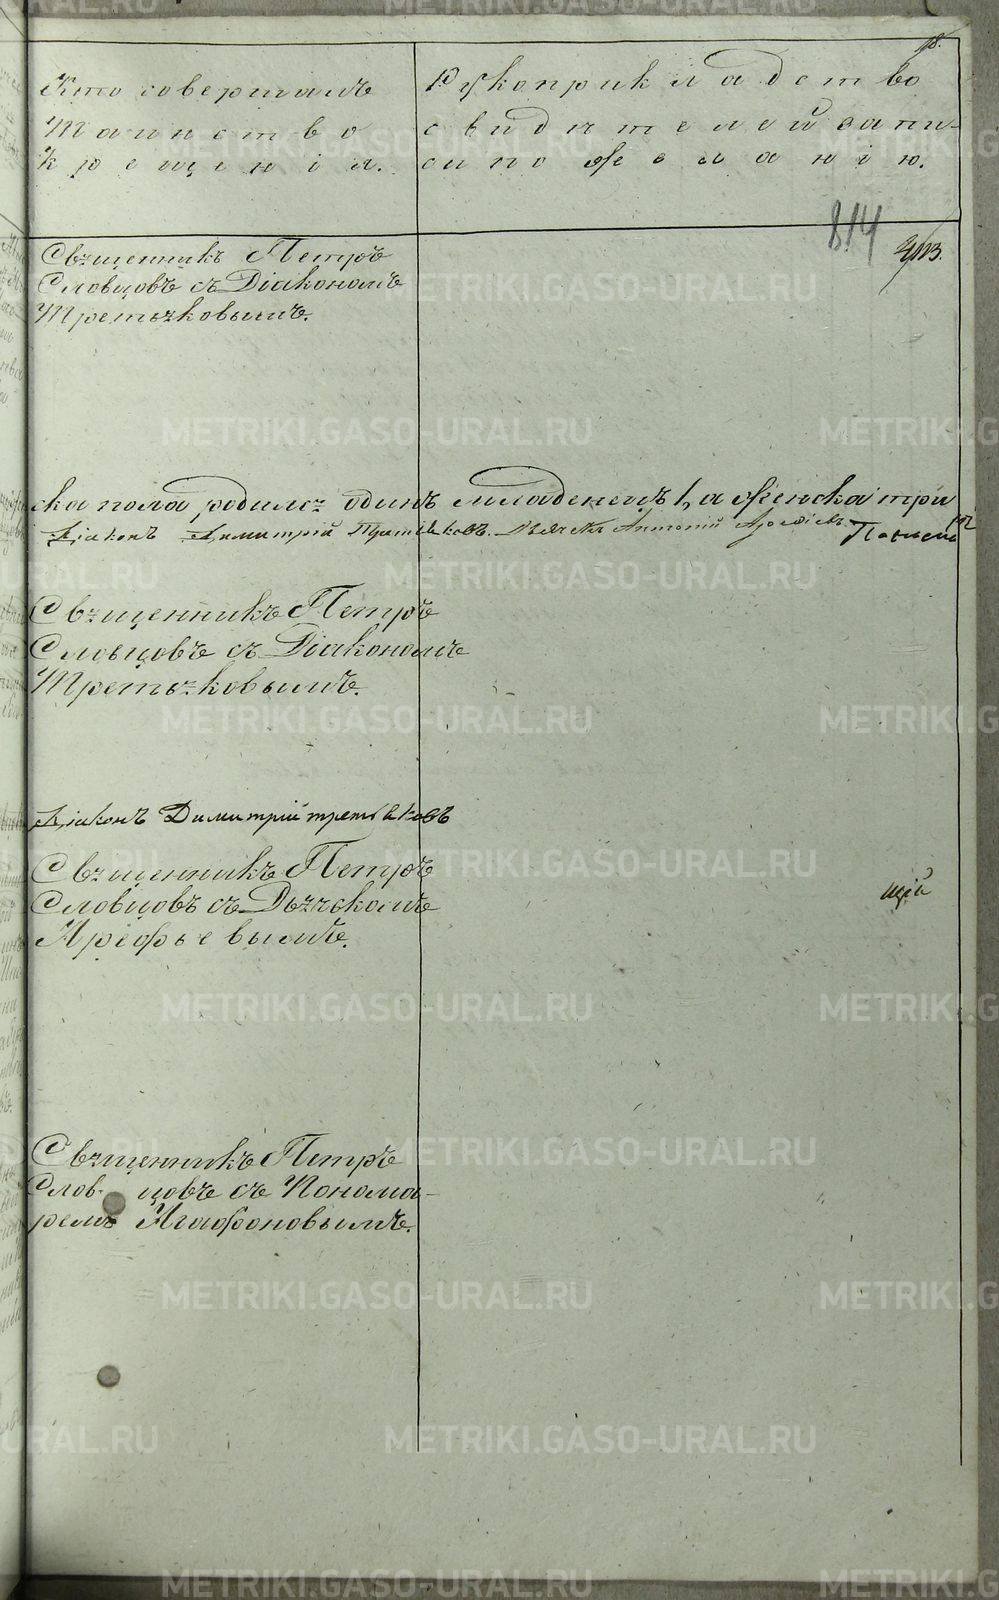 18.
Кто совершалъ
Таинство
Крещенія.
Рукоприкладство
свидѣтелей запи-
си по желанію.
814
Священникъ Петръ
Словцовъ съ Діакономъ
Третьяковымъ.
ска пола родился одинъ младенецъ 1, а женска три
Діаконъ Димитрій Третьяковъ. Дьячекъ Антоній Арефіевъ
Священникъ Петръ
Словцовъ съ Діакономъ
Третьяковымъ.
Діаконъ Димитрій третьяковъ
Священникъ Петръ
Словцовъ съ Дьячкомъ
Арефьевымъ.
щій
Священникъ Петръ
Словцовъ съ Понома-
ремъ Агафоновымъ.
METRIKI.GASO-URAL.RU